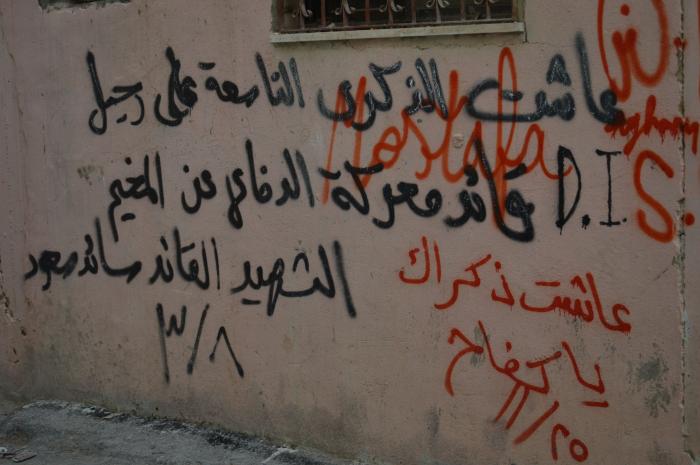 عاشت الذكرى التاسعة على رحيل
قائد معركة الدفاع عن المخيم
الشهيد القائد سائد سعود
٣/٨
D.I.S.
عاشت ذكراك
يا كفاح
11/25